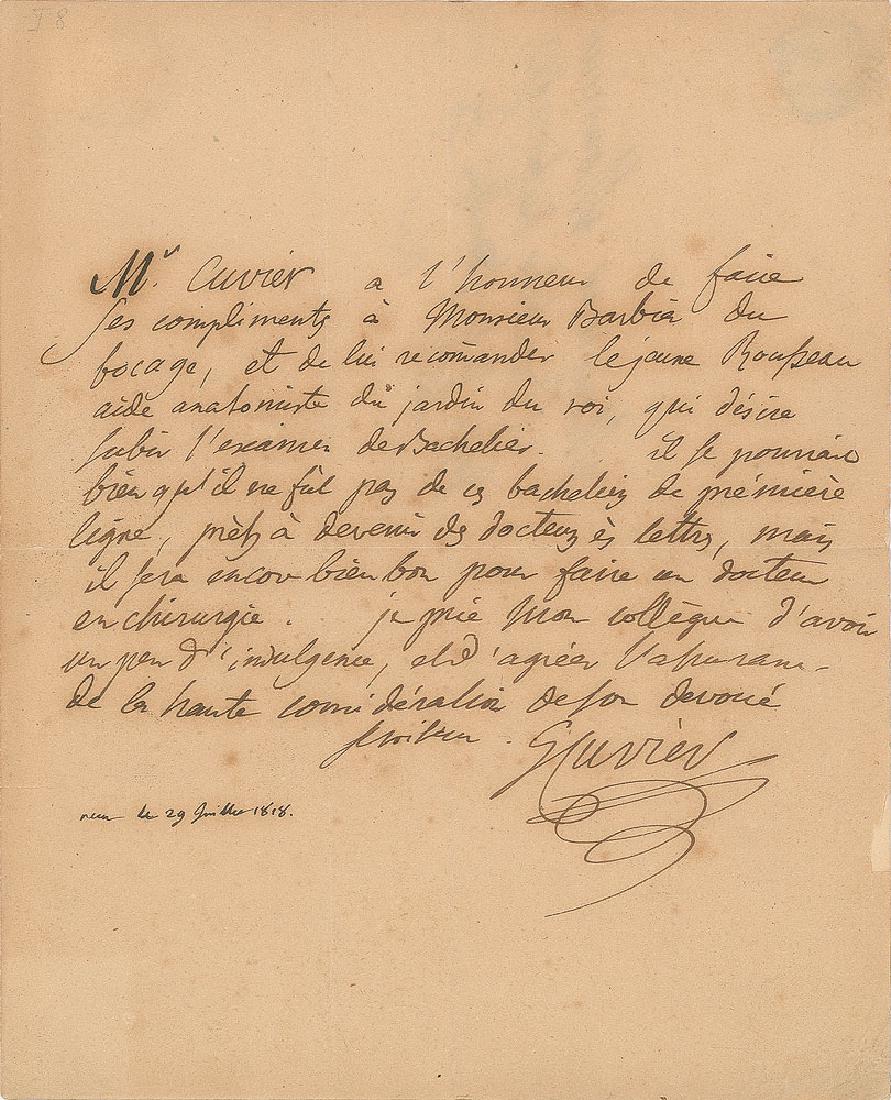 T 8
Mr. Cuvier a l'honneur de faire
ses compliments à Monsieur Barbié du
bocage, et de lui recomander le jeune Rousseau
aide anatomiste du jardin du roi, qui désire
subir l'examen de Bachelier. il se pourrait
bien qu'il ne fût pas de ces bacheliers de prémière
ligne, prêts à devenir des docteurs ès lettres, mais
il sera encore bien bon pour faire un docteur
en chirurgie. je prie mon collègue d'avoir
un peu d'indulgence, et d'agréer l'assurance
de la haute considération de son devoué
serviteur. G Cuvier
reçu le 29 Juillet 1818.